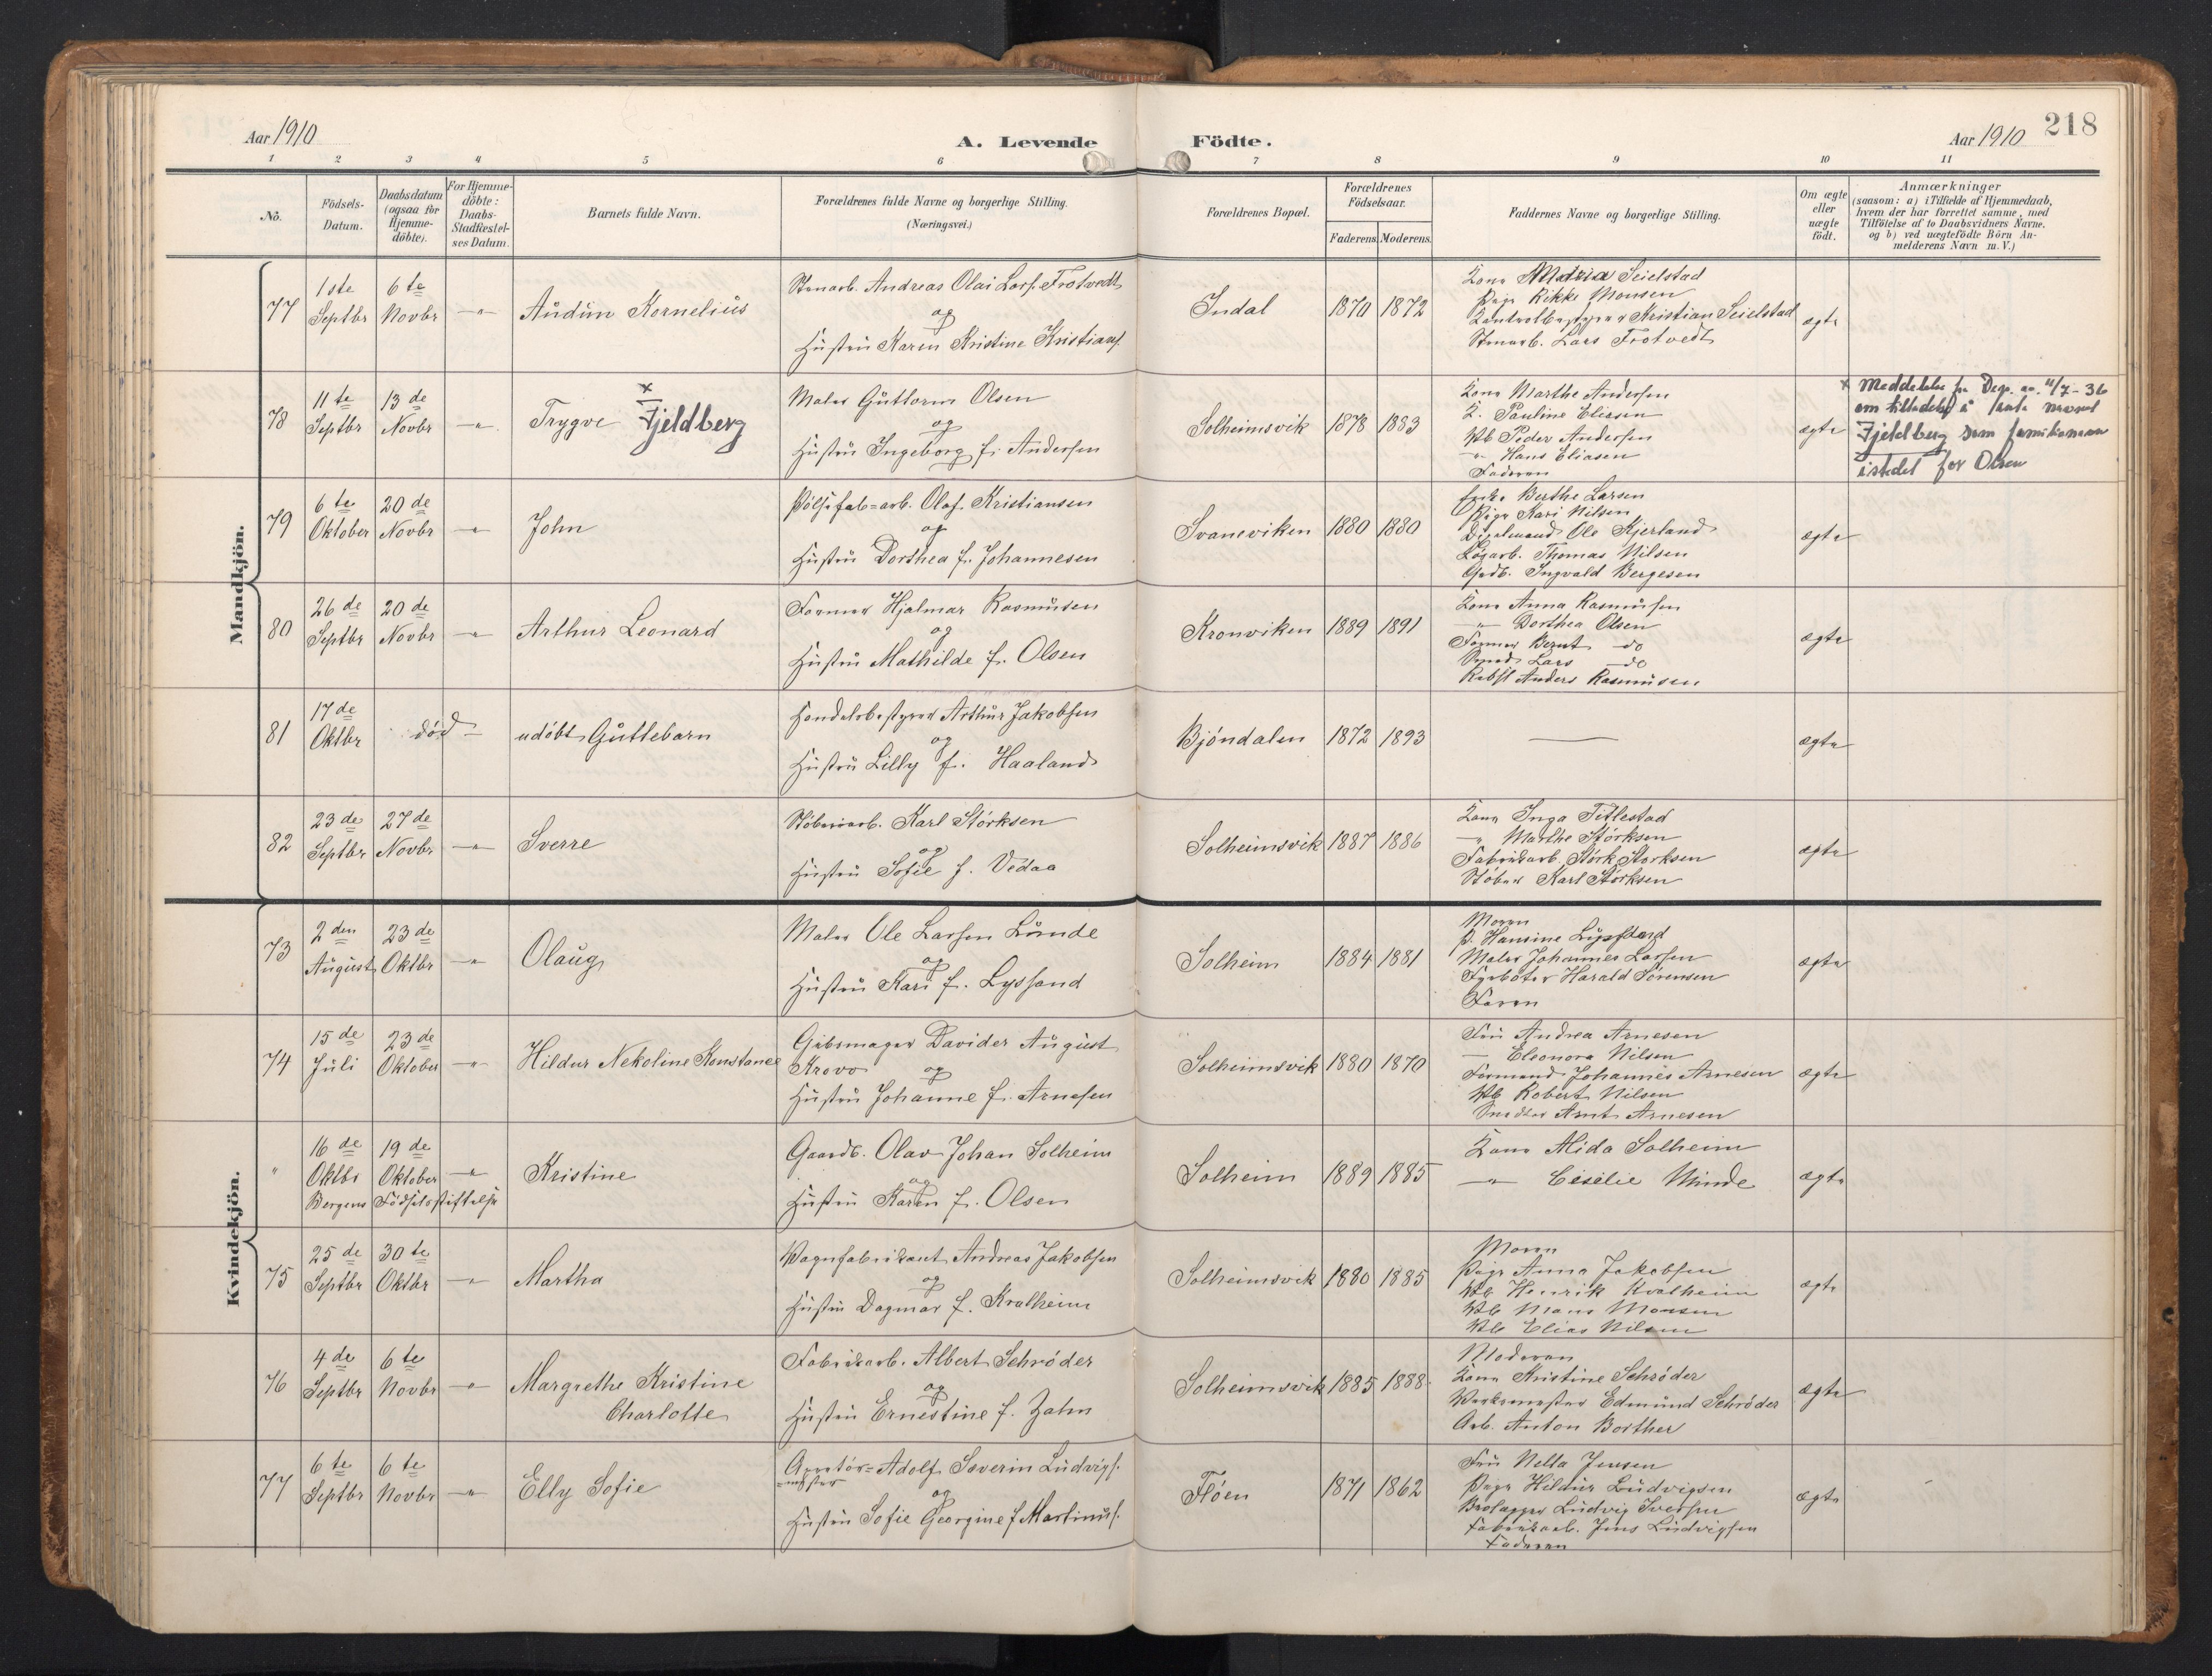 Aar 1910
A. Levende Födte.
Aar 1910
218
1 2 3 4 5 6 7 8 9 10 11
No.
Födsels-Datum.
Daabsdatum (ogsaa for Hjemme-döbte).
For Hjemme-döbte: Daabs-Stadfæstel-ses Datum.
Barnets fulde Navn.
Forældrenes fulde Navne og borgerlige Stilling.
(Næringsvei.)
Forældrenes Bopæl.
Forældrenes Födselsaar.
Faderens. Moderens.
Faddernes Navne og borgerlige Stilling.
Om ægte eller uægte födt.
Anmærkninger
(saasom: a) i Tilfælde af Hjemmedaab,
hvem der har forrettet samme, med
Tilföielse af to Daabsvidners Navne.
og b) ved uægtefödte Börn An-
melderens Navn m. V.)
Mandkjön.
77 1ste Septbr 6te Novbr " Audun Kornelius
Stenarb. Andreas Olai Lars. Trotvedt
og
Hustru Karen Kristine Kristians.
Indal 1870 1872
Kone Maria Seielstad
Pige Rikke Monsen
Kristian Seielstad
Stenarb. Lars Trotvedt
ægte
78 11te Septbr 13de Novbr " Trygve x Fjeldberg
Maler Guttorm Olsen
og
Hustru Ingeborg f. Andersen
Solheimsvik 1878 1883
Kone Marthe Andersen
K. Pauline Eliasen
Peder Andersen
" Hans Eliasen
Faderen
ægte
x Meddelelse fr. Dep. av 4/7-36
om tilladelse å navnet
Fjeldberg som familienavn
istedet for Olsen
79 6te Oktober 20de Novbr " John
Pølsefab=arb. Olaf Kristiansen
og
Hustru Dorthea f. Johannesen
Svaneviken 1880 1880
Enke Berthe Larsen
Pige Kari Nilsen
Ole Kjerland
Thomas Nilsen
Ingvald Bergesen
ægte
80 26de Septbr 20de Novbr " Arthur Leonard
Former Hjalmar Rasmusen
og
Hustru Mathilde f. Olsen
Kronviken 1889 1891
Kone Anna Rasmusen
" Dorthea Olsen
Former Bernt do
Smed Lars do
Anders Rasmusen
ægte
81 17de Oktbr død udöbt Guttebarn
Handelsbestyrer Arthur Jakobsen
og
Hustru Lilly f. Haaland
Bjöndalen 1872 1893
—
ægte
82 23de Septbr 27de Novbr " Sverre
Støberiarb. Karl Störksen
og
Hustru Sofie f. Vedaa
Solheimsvik 1887 1886
Kone Inga Titlestad
" Marthe Störksen
Fabrikarb. Störk Störksen
Støber Karl Störksen
ægte
Kvindekjön.
73 2den August 23de Oktbr " Olaug
Maler Ole Larsen Lunde
og
Hustru Kari f. Lyssand
Solheim 1884 1881
Moren
P. Hansine Lyssand
Maler Johannes Larsen
Fyrbøter Harald Sørensen
Faren
ægte
74 15de Juli 23de Oktober " Hildur Nekoline Konstance
Gibsmager Davider August
Krovo og
Hustru Johanne f. Arnesen
Solheimsvik 1880 1870
Fru Andrea Arnesen
— Eleonora Nilsen
Formand Johannes Arnesen
Robert Nilsen
Arnt Arnesen
ægte
" 16de Oktbr 19de Oktober " Kristine
Bergens Födselsstiftelse
Gaardb. Olav Johan Solheim
og
Hustru Karen f. Olsen
Solheim 1889 1885
Kone Alida Solheim
" Cecilie Minde
ægte
75 25de Septbr 30te Oktbr " Martha
Vognfabrikant Andreas Jakobsen
og
Hustru Dagmar f. Kvalheim
Solheimsvik 1880 1885
Moren
Pige Anna Jakobsen
Henrik Kvalheim
Mons Monsen
Elias Nilsen
ægte
76 4de Septbr 6te Novbr " Margrethe Kristine
Charlotte
Fabrikarb. Albert Schröder
og
Hustru Ernestine f. Zahn
Solheimsvik 1885 1888
Moderen
Kone Kristine Schröder
Verksmester Edmund Schröder
Arb. Anton Borther
ægte
77 6te Septbr 6te Novbr " Elly Sofie
Appretör= Adolf Severin Ludvigs.
=mester
og
Hustru Sofie Georgine f Martinus.
Flöen 1871 1862
Fru Nella Jensen
Pige Hildur Ludvigsen
Ludvig Iversen
Fabrikarb. Jens Ludvigsen
Faderen
ægte